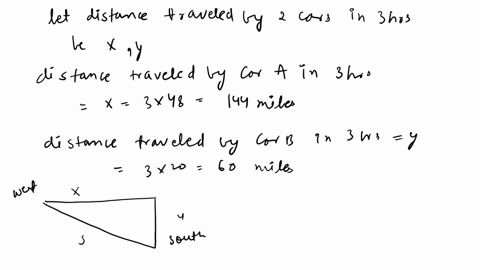 let distance traveled by 2 cars in 3hrs
be x, y
distance traveled by Car A in 3hrs
= x = 3×48 = 144 miles
distance traveled by Car B in 3 hrs = y
= 3×20 = 60 miles
west
x
y
s
south